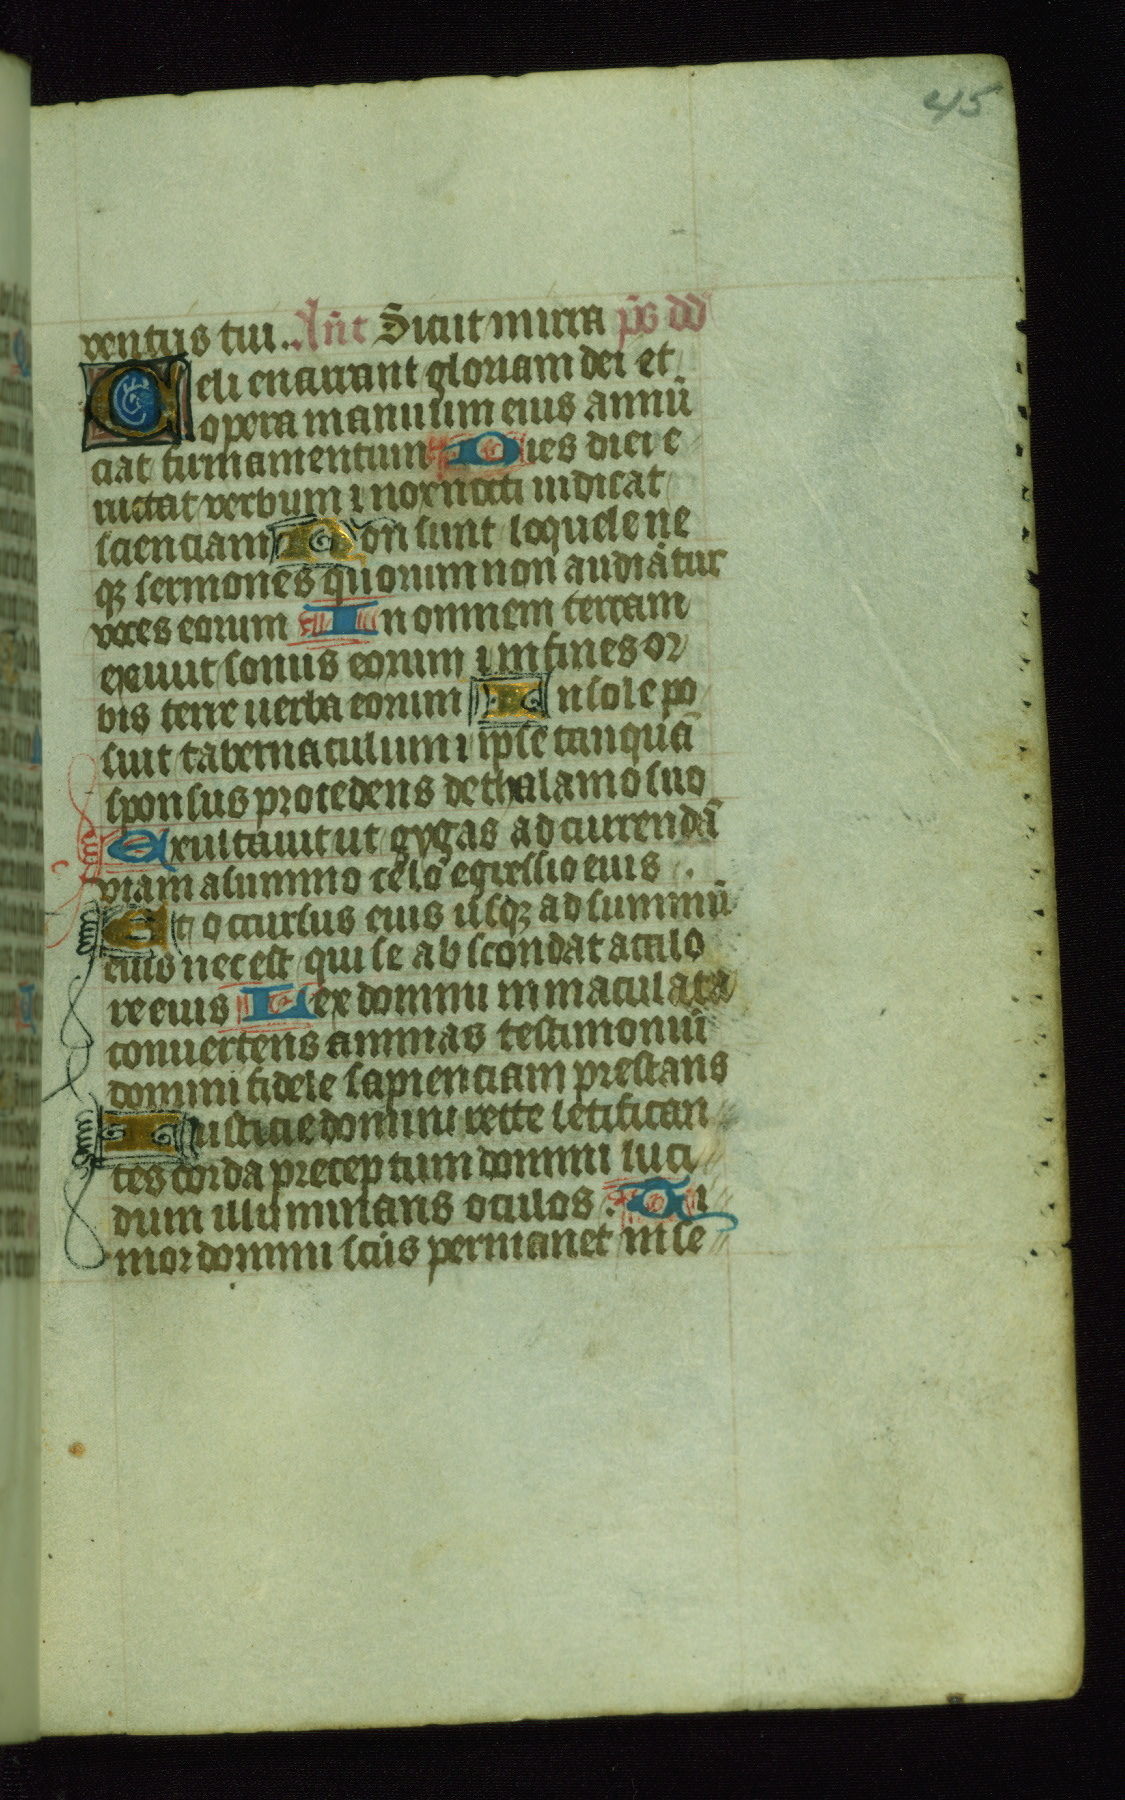 45
ventris tui. Añt Sicut mirra p̄s dd
Celi enarrant gloriam dei et
opera manuum eius annū
ciat firmamentum Dies diei e
ructat verbum ⁊ nox nocti indicat
scienciam Non sunt loquele ne
qꝫ sermones quorum non audiātur
voces eorum In omnem terram
exivit sonus eorum ⁊ in fines or
bis terre verba eorum In sole po
suit tabernaculum ⁊ ipse tanquā
sponsus procedens de thalamo suo
Exultavit ut gygas ad currendā
viam a summo celo egressio eius .
Et occursus eius usqꝫ ad summū
eius nec est qui se abscondat a calo
re eius Lex domini inmaculata
convertens animas testimoniū
domini fidele sapienciam prestans
Iusticie domini recte letifican
tes corda preceptum domini luci
dum illuminans oculos . Ti
mor domini scūs permanet in se